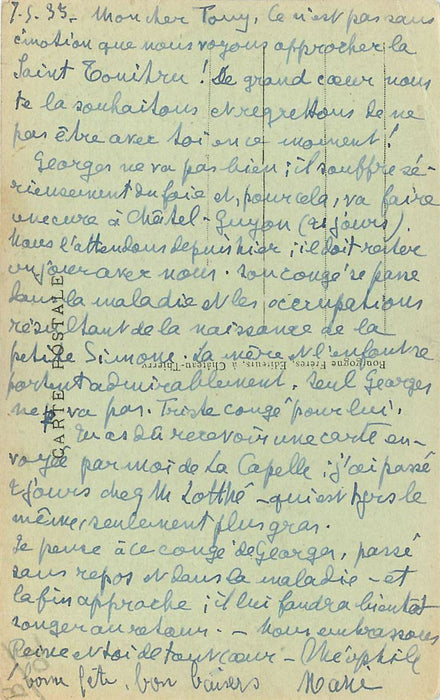 7.5.35- Mon cher Tony, Ce n'est pas sans
émotion que nous voyons approcher la
Saint ! De grand cœur nous
te la souhaitons et regrettons de ne
pas être avec toi en ce moment !
Georges ne va pas bien ; il souffre sé-
rieusement du foie et, pour cela, va faire
une cure à Châtel-Guyon (21 jours).
Nous l'attendons depuis hier ; il doit rester
un jour avec nous. Son congé se passe
dans la maladie et les occupations
résultant de la naissance de la
petite Simone. La mère et l'enfant se
portent admirablement. Seul Georges
ne va pas. Triste congé pour lui.
Tu as dû recevoir une carte en-
voyée par moi de La Capelle ; j'ai passé
jours chez M Lotthé - qui est tjrs le
même, seulement plus gras.
Je pense à ce congé de Georges, passé
sans repos et dans la maladie - et
la fin approche ; il lui faudra bientôt
songer au retour. - Nous embrassons
Reine et toi de tout cœur - Théophile
bonne fête, bon baisers
CARTE POSTALE
Bourgogne Frères, Editeurs, à Château-Thierry